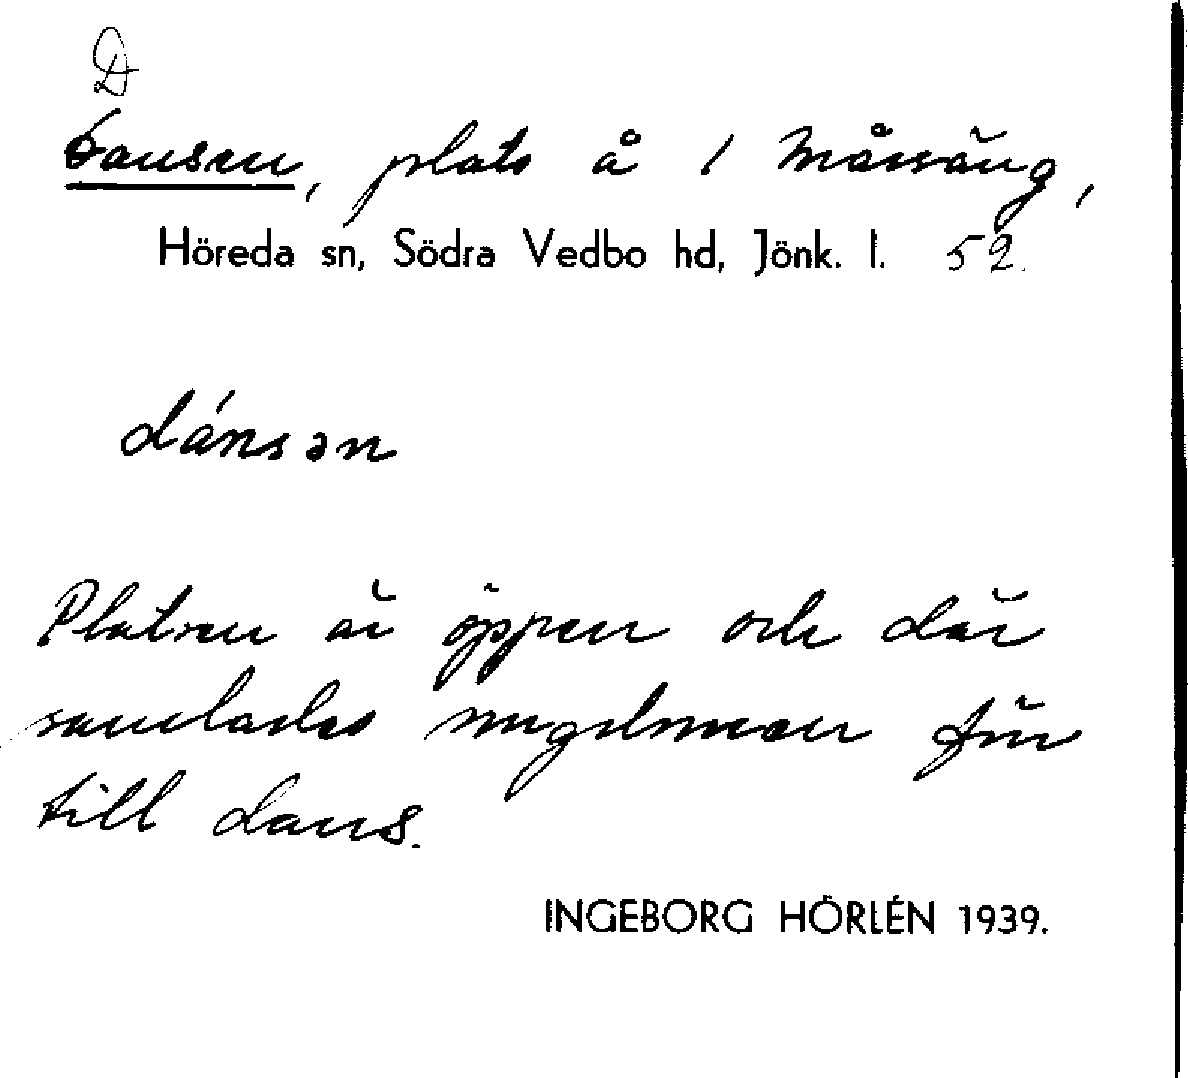 D
Dansen, plats å 1 Måssäng,
Höreda sn, Södra Vedbo hd, Jönk. l. 52.
dánsən
Platsen är öppen och där
samlades ungdomen för
till dans.
INGEBORG HÖRLÉN 1939.